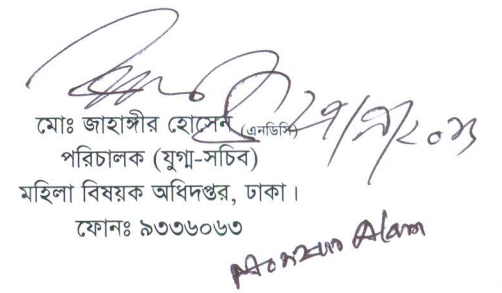 মোঃ জাহাঙ্গীর হোসেন (এনডিসি)
পরিচালক (যুগ্ম-সচিব)
মহিলা বিষয়ক অধিদপ্তর, ঢাকা।
ফোনঃ ৯৩৩৬০৬৩
Alam